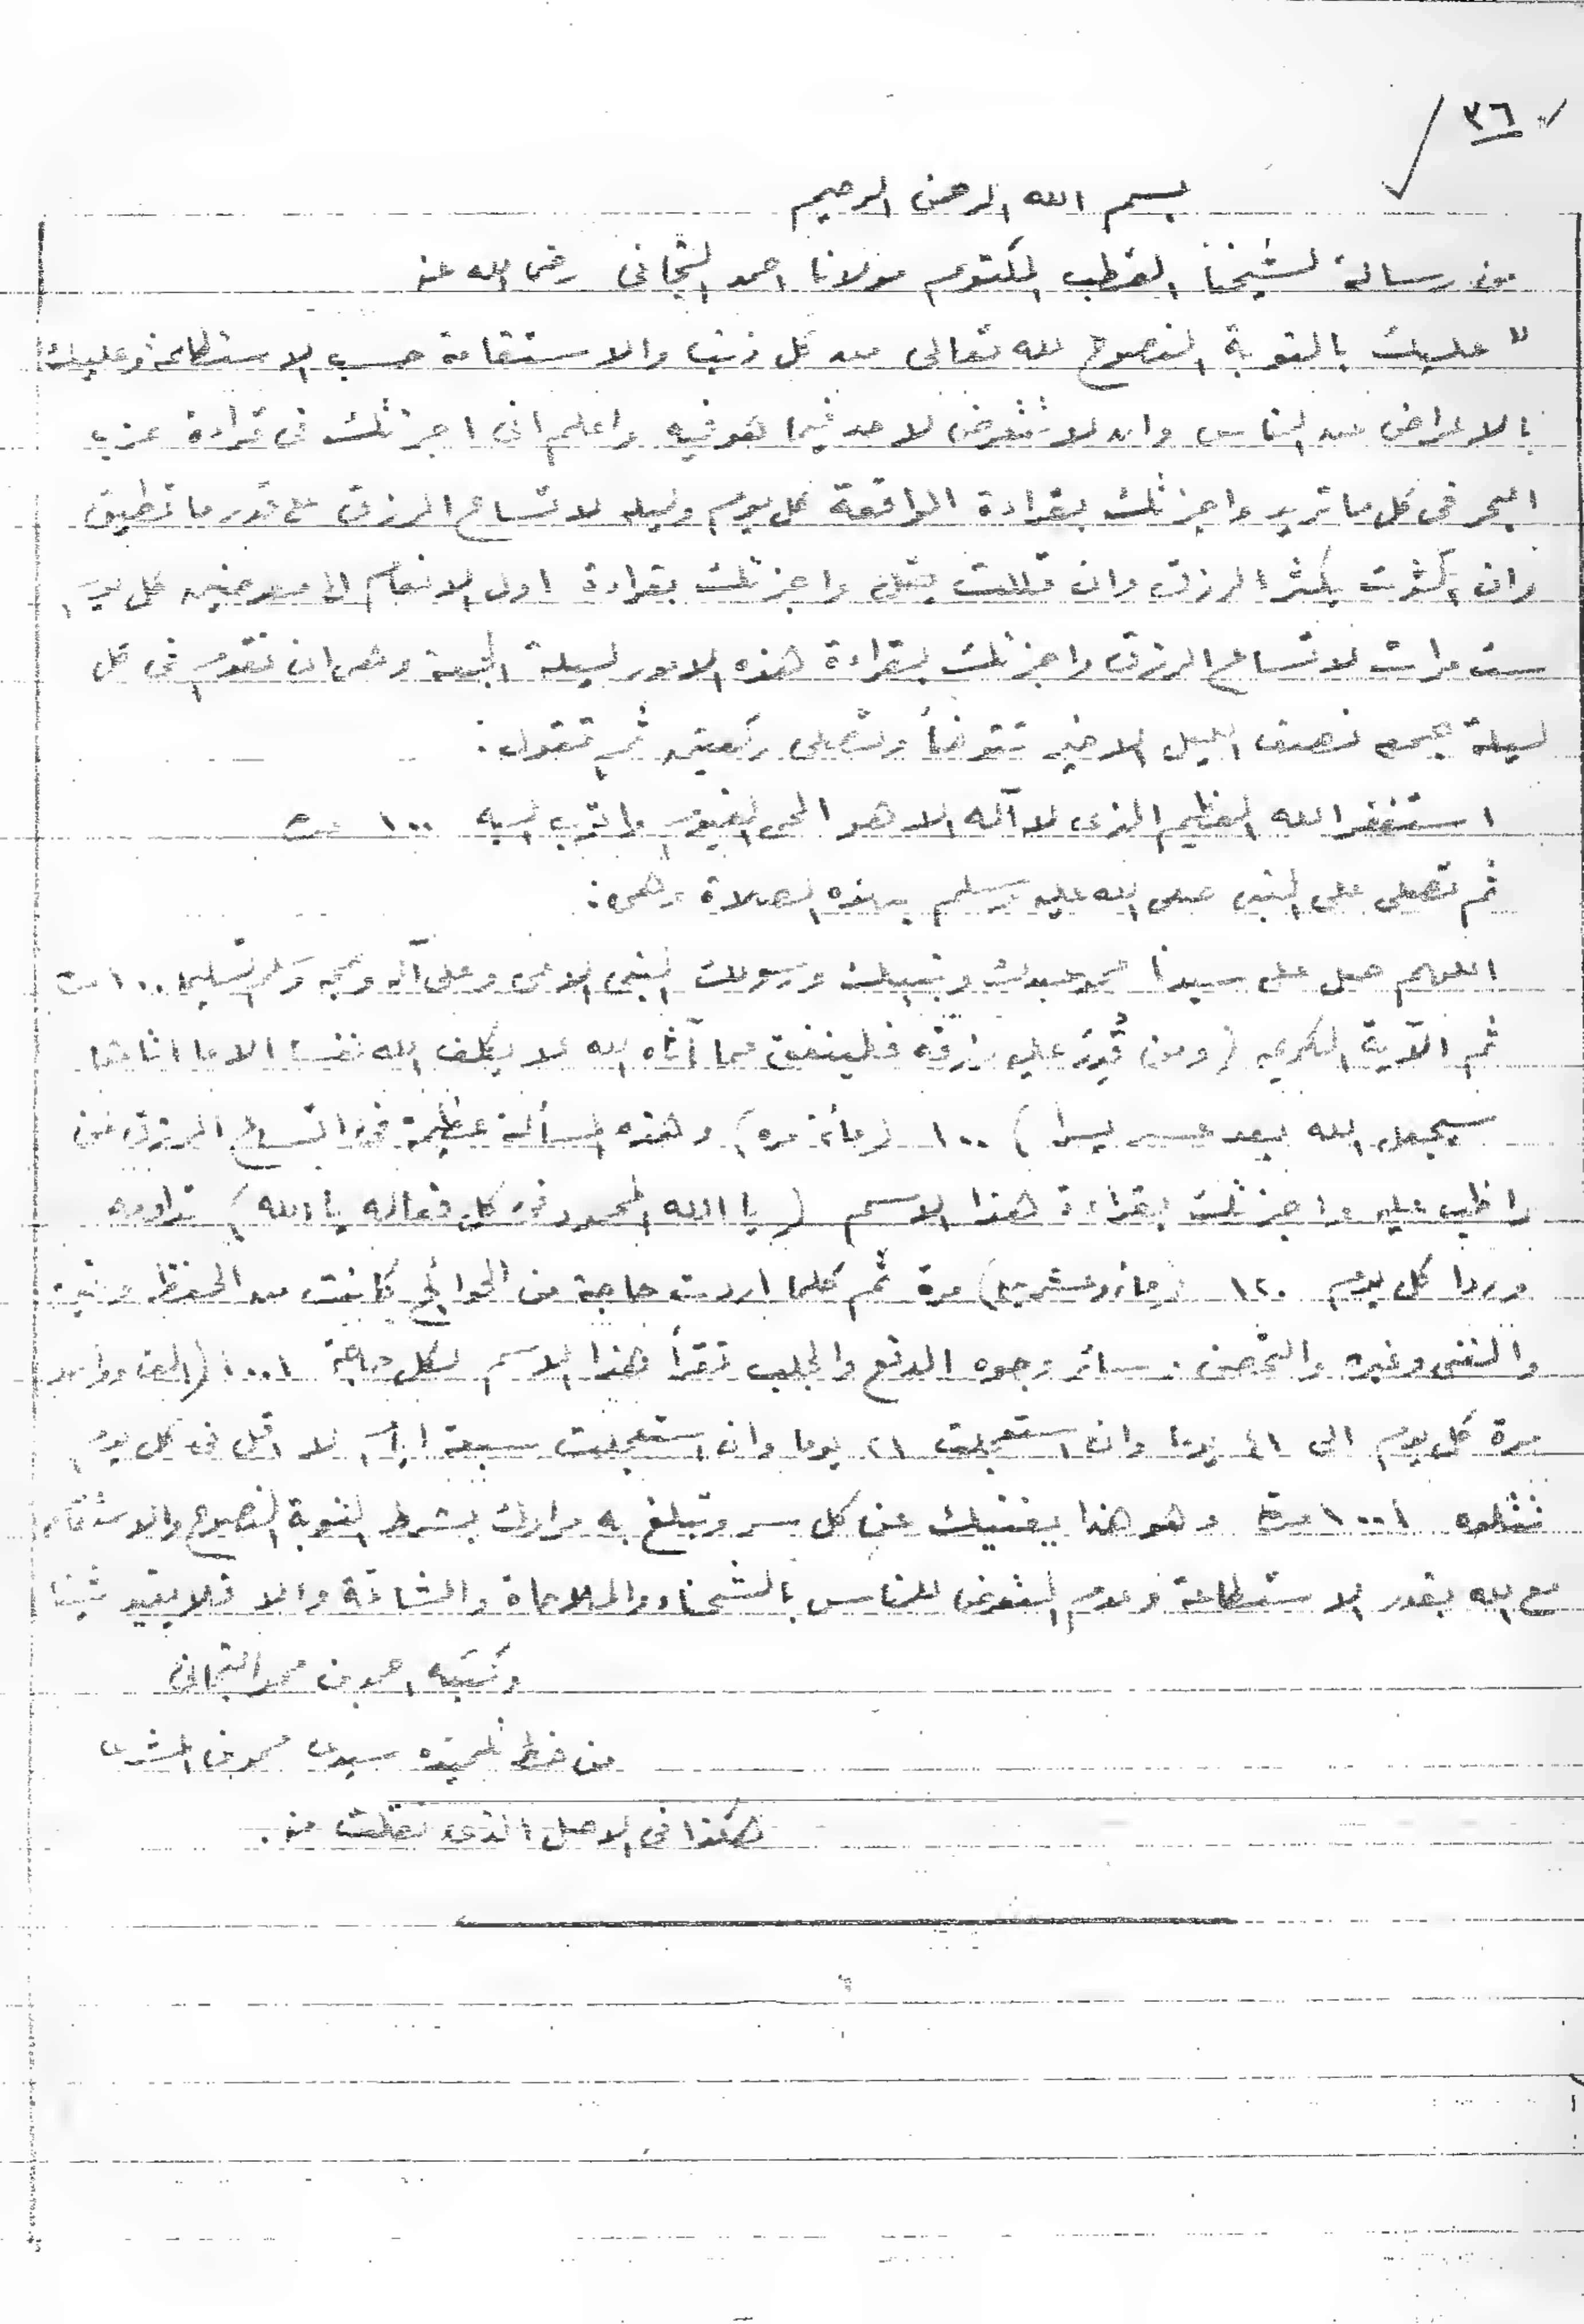 ٣٦
بسم الله الرحمن الرحيم
من رسالة لشيخنا القطب المكتوم مولانا احمد التجانى رضى الله عنه
" عليك بالتوبة النصوح لله تعالى من كل ذنب والاستقامة حسب الاستطاعة وعليك
بالاعراض عن الناس وان لا تتعرض لاحد فيما هو فيه واعلم انى اجزتك فى قراءة حزب
البحر فى كل ما تريد واجزتك بقراءة الواقعة كل يوم وليله لاتساع الرزق على قدر ما تطيق
وان اكثرت يكثر الرزق وان قللت يقل واجزتك بقراءة اول الانعام الى معرضين كل يوم
ست مرات لاتساع الرزق واجزتك بقراءة هذه الامور ليلة الجمعة وهى ان تقوم فى كل
ليلة جمعه نصف الليل الاخير تتوضأ وتصلى ركعتين ثم تقول :
استغفر الله العظيم الذى لا آله الا هو الحى القيوم واتوب اليه ١٠٠ مرة
ثم تصلى على النبى صلى الله عليه وسلم بهذه الصلاة وهى :
اللهم صل على سيدنا محمد عبدك ونبيك ورسولك النبى الامى وعلى آله وصحبه وسلم تسليما ١٠٠ مرة
ثم الآية الكريمه (ومن قُدِرَ عليه رزقه فلينفق مما آتاه الله لا يكلف الله نفسا الا ما اتاها
سيجعل الله بعد عسر يسرا ) ١٠٠ (مائة مره) وهذه المسألة عظيمة فى اتساع الرزق لمن
واظب عليه واجزتك بقراءة هذا الاسم (يا الله المحمود فى كل فعاله يا الله) تداومه
وردا كل يوم ١٢٠ (مائه وعشرين) مرة ثم كلما اردت حاجة من الحوائج كانت من الحفظ وغيره
والغنى وغيره والتحصن وسائر وجوه الدفع والجلب تقرأ هذا الاسم لكل حاجة ١٠٠١ (الف وواحد)
مرة كل يوم الى ٤١ يوما وان استعجلت ٢١ يوما وان استعجلت سبعة ايام لا اقل فى كل يوم
تتلوه ١٠٠١ مرة وهو هذا يغنيك عن كل سر وتبلغ به مرادك بشرط التوبة النصوح والاستقامه
مع الله بقدر الاستطاعة وعدم التعرض للناس بالشحناء والملاحاة والشماتة والا فلا يفيد شيئا
وكتبه احمد بن محمد التجانى
من خط تلميذه سيدى محمد بن المشرى
هكذا فى الاصل الذى نقلت منه .